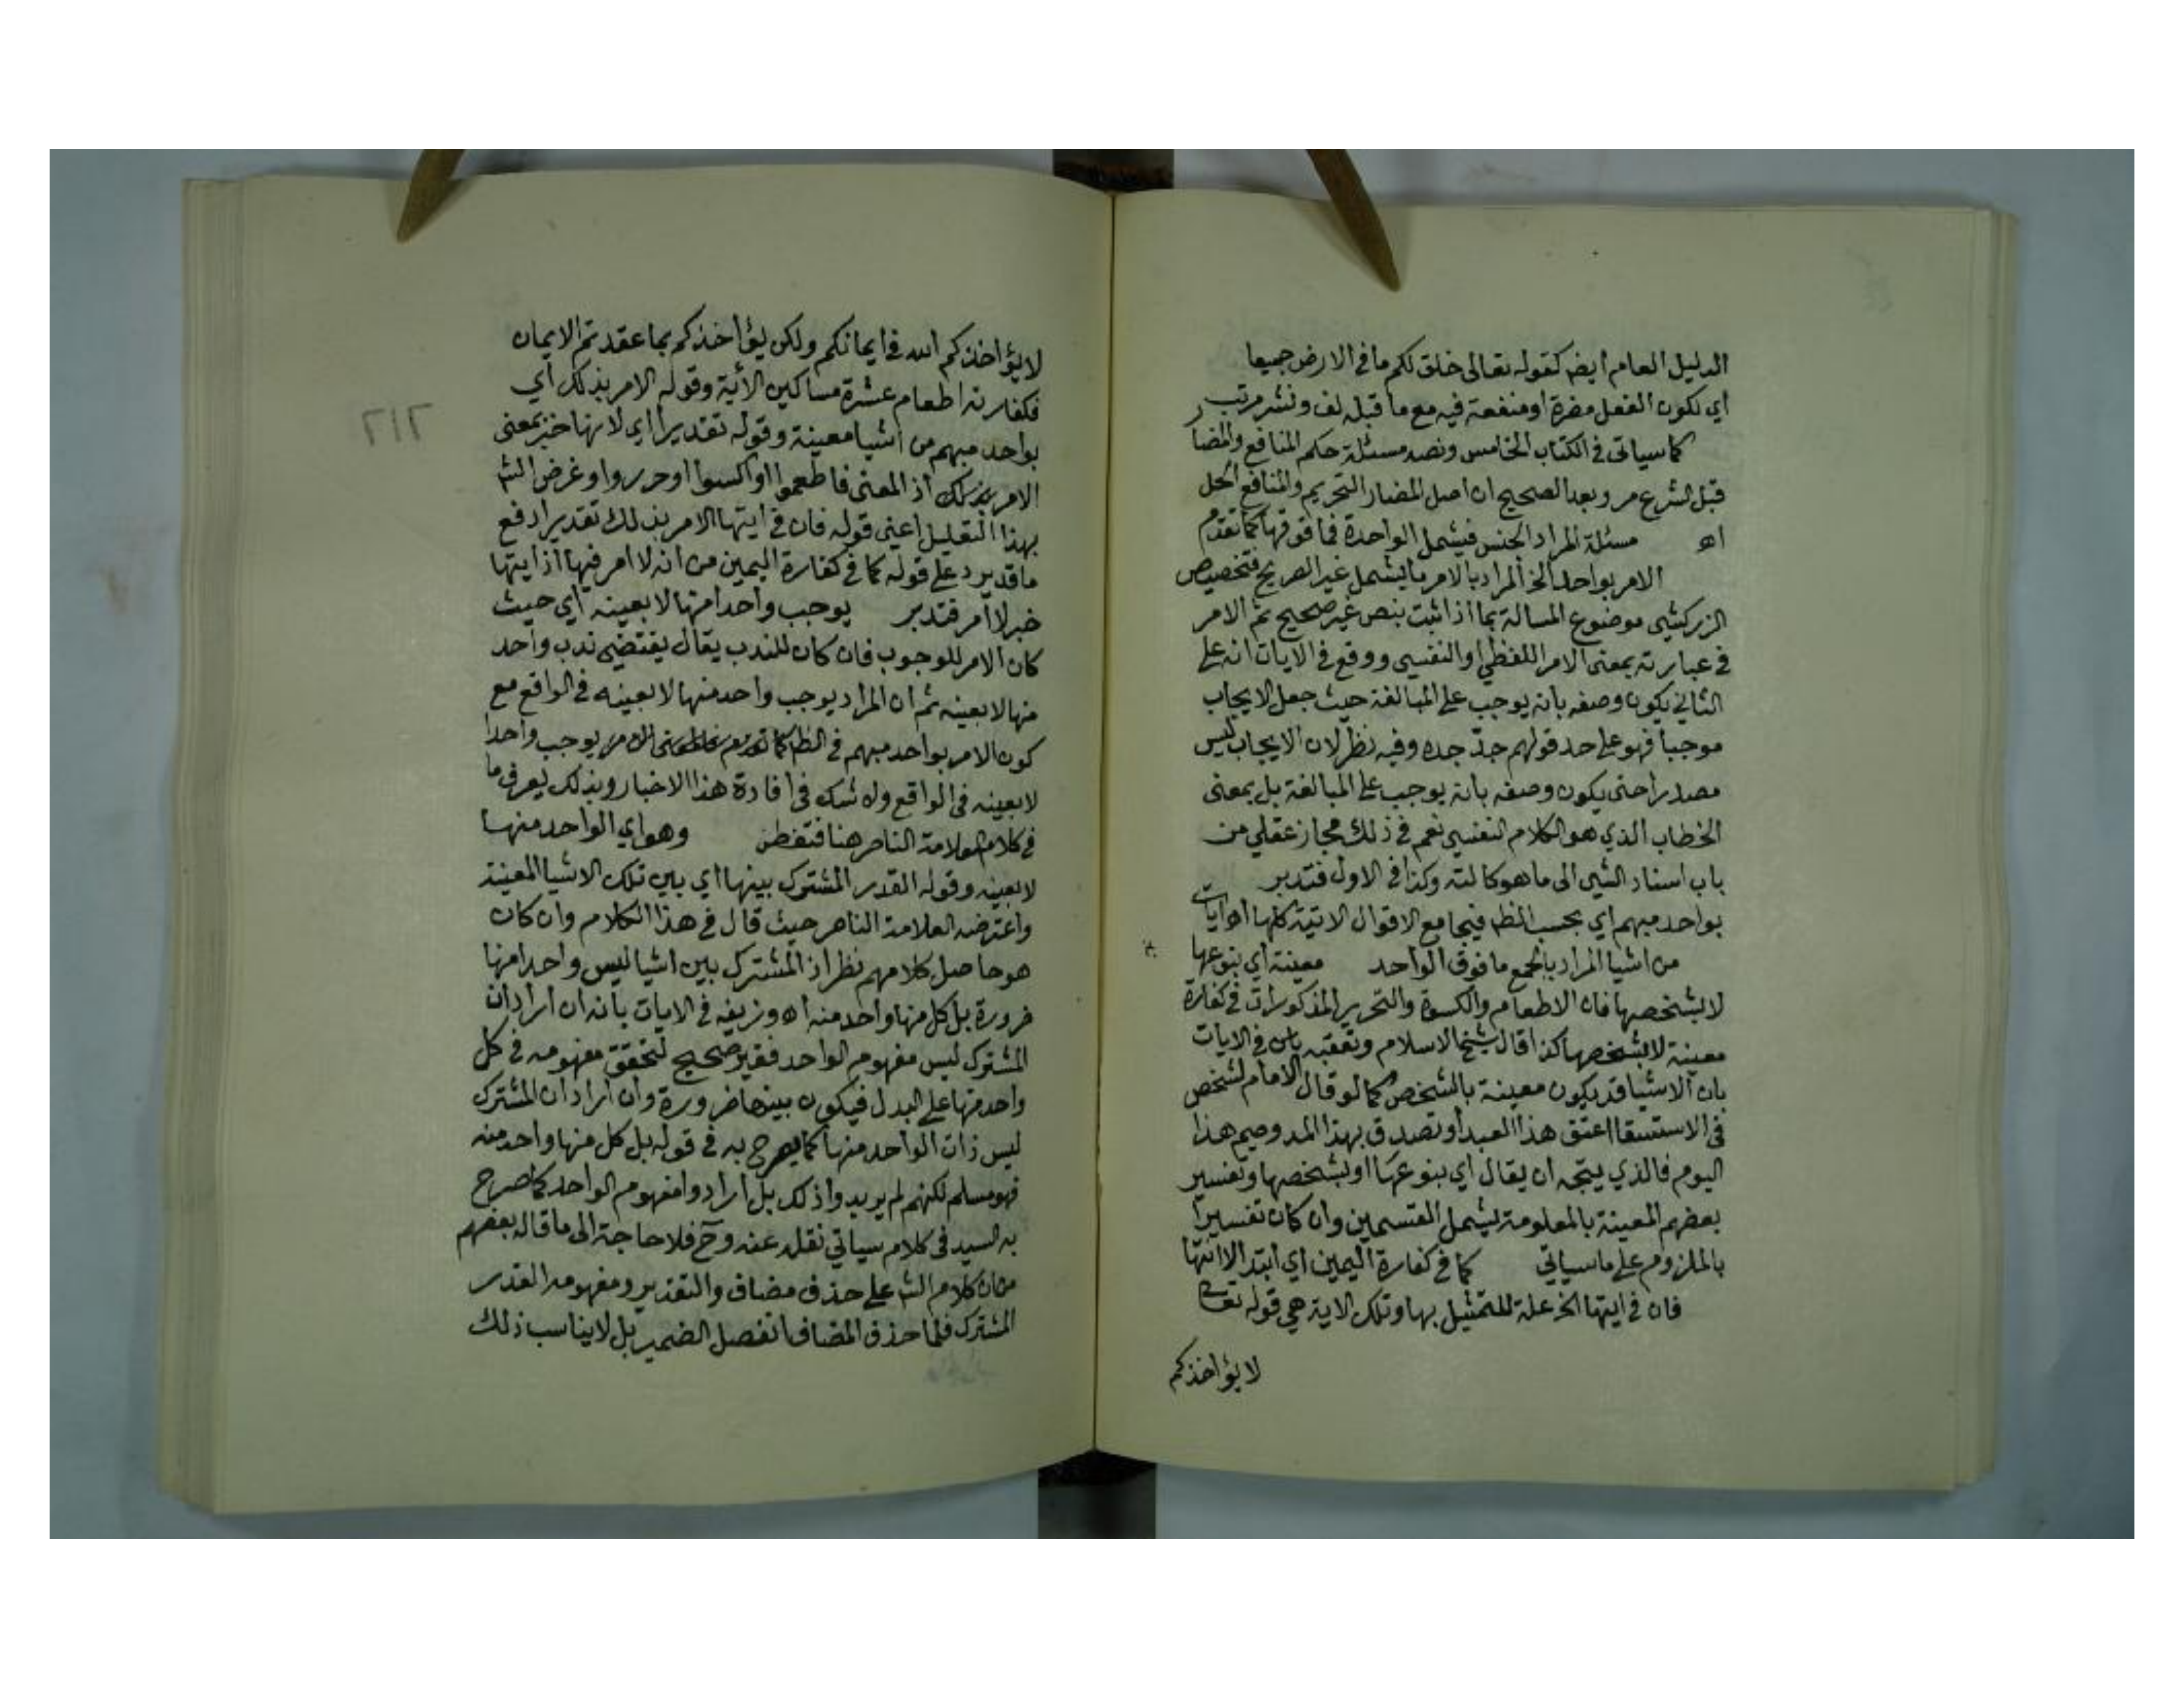 الدليل العام ايضا كقوله تعالى خلق لكم ما في الارض جميعا
اي لكون الفعل مضرة او منفعة فيه مع ما قبله لف ونشر مرتب
كما سياتي في الكتاب الخامس ونصه مسئلة حكم المنافع والمضار
قبل الشرع مر وبعده الصحيح ان اصل المضار التحريم والمنافع الحل
اه مسئلة المراد الجنس فيشمل الواحدة فما فوقها كما تقدم
الامر بواحد الخ المراد بالامر ما يشمل غير الصريح فتخصيص
الزركشي موضوع المسالة بما اذا ثبت بنص غير صحيح ثم الامر
في عبارته بمعنى الامر اللفظي او النفسي ووقع في الايات انه على
الثاني يكون وصفه بانه يوجب على المبالغة حيث جعل الايجاب
موجبا فهو على حد قولهم جد جده وفيه نظر لان الايجاب ليس
مصدرا حتى يكون وصفه بانه يوجب على المبالغة بل بمعنى
الخطاب الذي هو الكلام النفسي نعم في ذلك مجاز عقلي من
باب اسناد الشي الى ما هو كالته وكذا في الاول فتدبر
بواحد مبهم اي بحسب الظ فيجامع الاقوال الاتية كلها اه ايات
من اشيا المراد بالجمع ما فوق الواحد معينة اي بنوعها
لا بشخصها فان الاطعام والكسوة والتحرير المذكورات في كفارة
معينة لا بشخصها كذا قال شيخ الاسلام وتعقبه في الايات
بان الاشيا قد يكون معينة بالشخص كما لو قال الامام لشخص
في الاستسقا اعتق هذا العبد او تصدق بهذا المد وصم هذا
اليوم فالذي يتجه ان يقال اي بنوعها او بشخصها وتفسير
بعضهم المعينة بالمعلومة ليشمل القسمين وان كان تفسيرا
بالملزوم على ما سياتي كما في كفارة اليمين اي ابتد الا انتها
فان في ايتها الخ علة للتمثيل بها وتلك الاية هي قوله تعالى
لا يؤاخذكم
٢١٢
لا يؤاخذكم الله في ايمانكم ولكن يؤاخذكم بما عقدتم الايمان
فكفارته اطعام عشرة مساكين الأية وقوله الامر بذلك اي
بواحد مبهم من اشيا معينة وقوله تقديرا اي لانها خبر بمعنى
الامر بذلك اذ المعنى فاطعموا او اكسوا او حرروا وغرض الش
بهذا التعليل اعني قوله فان في ايتها الامر بذلك تقديرا دفع
ما قد يرد على قوله كما في كفارة اليمين من انه لا امر فيها اذ ايتها
خبر لا امر فتدبر يوجب واحدا منها لا بعينه اي حيث
كان الامر للوجوب فان كان للندب يقال يقتضي ندب واحد
منها لا بعينه ثم ان المراد يوجب واحد منها لا بعينه في الواقع مع
كون الامر بواحد مبهم في الظ كما تقدم يوجب واحدا
لا بعينه في الواقع ولا شك في افادة هذا الاخبار وبذلك يعرف ما
في كلام العلامة الناصر هنا فتفطن وهو اي الواحد منها
لا بعينه وقوله القدر المشترك بينها اي بين تلك الاشيا المعينة
واعترضه العلامة الناصر حيث قال في هذا الكلام وان كان
هو حاصل كلامهم نظر اذ المشترك بين اشيا ليس واحدا منها
ضرورة بل كل منها واحد منه اه وزيفه في الايات بانه ان اراد ان
المشترك ليس مفهوم الواحد فغير صحيح لتحقق مفهومه في كل
واحد منها على البدل فيكون بينها ضرورة وان اراد ان المشترك
ليس ذات الواحد منها كما يصرح به في قوله بل كل منها واحد منه
فهو مسلم لكنهم لم يريدوا ذلك بل ارادوا مفهوم الواحد كما صرح
به السيد في كلام سياتي نقله عنه وح فلا حاجة الى ما قاله بعضهم
من ان كلام الش على حذف مضاف والتقدير ومفهومه القدر
المشترك فلما حذف المضاف انفصل الضمير بل لا يناسب ذلك